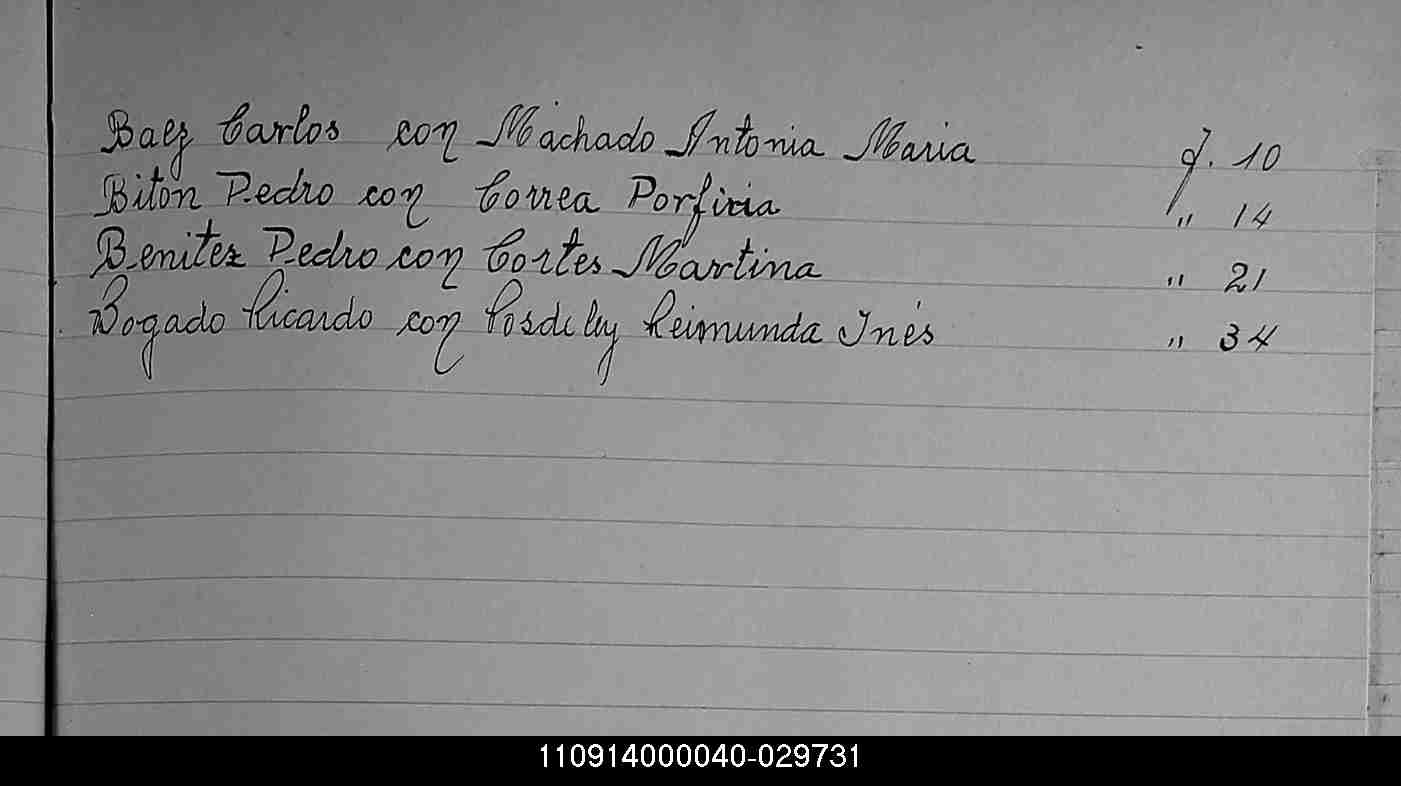 Baez Carlos con Machado Antonia Maria f. 10
Biton Pedro con Correa Porfiria " 14
Benitez Pedro con Cortes Martina " 21
Bogado Ricardo con Reimunda Inés " 34
110914000040-029731